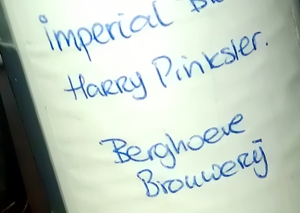 imperial
Harry Pinkster.
Berghoeve
Brouwerij